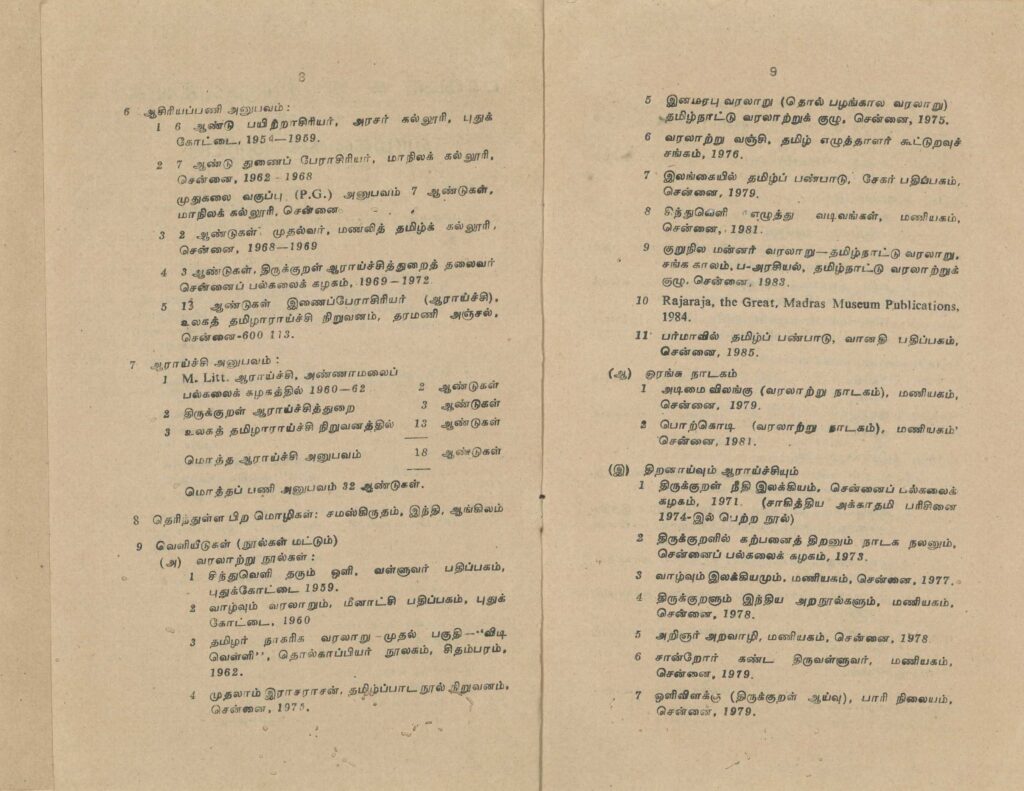 8
6 ஆசிரியப்பணி அனுபவம் :
1 6 ஆண்டு பயிற்றாசிரியர், அரசர் கல்லூரி, புதுக்
கோட்டை, 1954—1959.
2 7 ஆண்டு துணைப் பேராசிரியர், மாநிலக் கல்லூரி,
சென்னை, 1962 - 1968
முதுகலை வகுப்பு (P.G.) அனுபவம் 7 ஆண்டுகள்,
மாநிலக் கல்லூரி, சென்னை
3 2 ஆண்டுகள் முதல்வர், மணலித் தமிழ்க் கல்லூரி,
சென்னை, 1968—1969
4 3 ஆண்டுகள், திருக்குறள் ஆராய்ச்சித்துறைத் தலைவர்
சென்னைப் பல்கலைக் கழகம், 1969–1972
5 13 ஆண்டுகள் இணைப்பேராசிரியர் (ஆராய்ச்சி),
உலகத் தமிழாராய்ச்சி நிறுவனம், தரமணி அஞ்சல்,
சென்னை-600 113.
7 ஆராய்ச்சி அனுபவம் :
1 M. Litt. ஆராய்ச்சி, அண்ணாமலைப்
பல்கலைக் கழகத்தில் 1960–62 2 ஆண்டுகள்
2 திருக்குறள் ஆராய்ச்சித்துறை 3 ஆண்டுகள்
3 உலகத் தமிழாராய்ச்சி நிறுவனத்தில் 13 ஆண்டுகள்
மொத்த ஆராய்ச்சி அனுபவம் 18 ஆண்டுகள்
மொத்தப் பணி அனுபவம் 32 ஆண்டுகள்.
8 தெரிந்துள்ள பிற மொழிகள்: சமஸ்கிருதம், இந்தி, ஆங்கிலம்
9 வெளியீடுகள் (நூல்கள் மட்டும்)
(அ) வரலாற்று நூல்கள் :
1 சிந்துவெளி தரும் ஒளி, வள்ளுவர் பதிப்பகம்,
புதுக்கோட்டை 1959.
2 வாழ்வும் வரலாறும், மீனாட்சி பதிப்பகம், புதுக்
கோட்டை, 1960
3 தமிழர் நாகரிக வரலாறு—முதல் பகுதி—"விடி
வெள்ளி", தொல்காப்பியர் நூலகம், சிதம்பரம்,
1962.
4 முதலாம் இராசராசன், தமிழ்ப்பாட நூல் நிறுவனம்,
சென்னை, 1975.
9
5 இனமரபு வரலாறு (தொல் பழங்கால வரலாறு)
தமிழ்நாட்டு வரலாற்றுக் குழு, சென்னை, 1975.
6 வரலாற்று வஞ்சி, தமிழ் எழுத்தாளர் கூட்டுறவுச்
சங்கம், 1976.
7 இலங்கையில் தமிழ்ப் பண்பாடு, சேகர் பதிப்பகம்,
சென்னை, 1979.
8 சிந்துவெளி எழுத்து வடிவங்கள், மணியகம்,
சென்னை, 1981.
9 குறுநில மன்னர் வரலாறு—தமிழ்நாட்டு வரலாறு,
சங்க காலம், ப-அரசியல், தமிழ்நாட்டு வரலாற்றுக்
குழு, சென்னை, 1983.
10 Rajaraja, the Great, Madras Museum Publications,
1984.
11 பர்மாவில் தமிழ்ப் பண்பாடு, வானதி பதிப்பகம்,
சென்னை, 1985.
(ஆ) ஓரங்க நாடகம்
1 அடிமை விலங்கு (வரலாற்று நாடகம்), மணியகம்,
சென்னை, 1979.
2 பொற்கொடி (வரலாற்று நாடகம்), மணியகம்'
சென்னை, 1981.
(இ) திறனாய்வும் ஆராய்ச்சியும்
1 திருக்குறள் நீதி இலக்கியம், சென்னைப் பல்கலைக்
கழகம், 1971. (சாகித்திய அக்காதமி பரிசினை
1974-இல் பெற்ற நூல்)
2 திருக்குறளில் கற்பனைத் திறனும் நாடக நலனும்,
சென்னைப் பல்கலைக் கழகம், 1973.
3 வாழ்வும் இலக்கியமும், மணியகம், சென்னை, 1977.
4 திருக்குறளும் இந்திய அறநூல்களும், மணியகம்,
சென்னை, 1978.
5 அறிஞர் அறவாழி, மணியகம், சென்னை, 1978
6 சான்றோர் கண்ட திருவள்ளுவர், மணியகம்,
சென்னை, 1979.
7 ஒளிவிளக்கு (திருக்குறள் ஆய்வு), பாரி நிலையம்,
சென்னை, 1979.